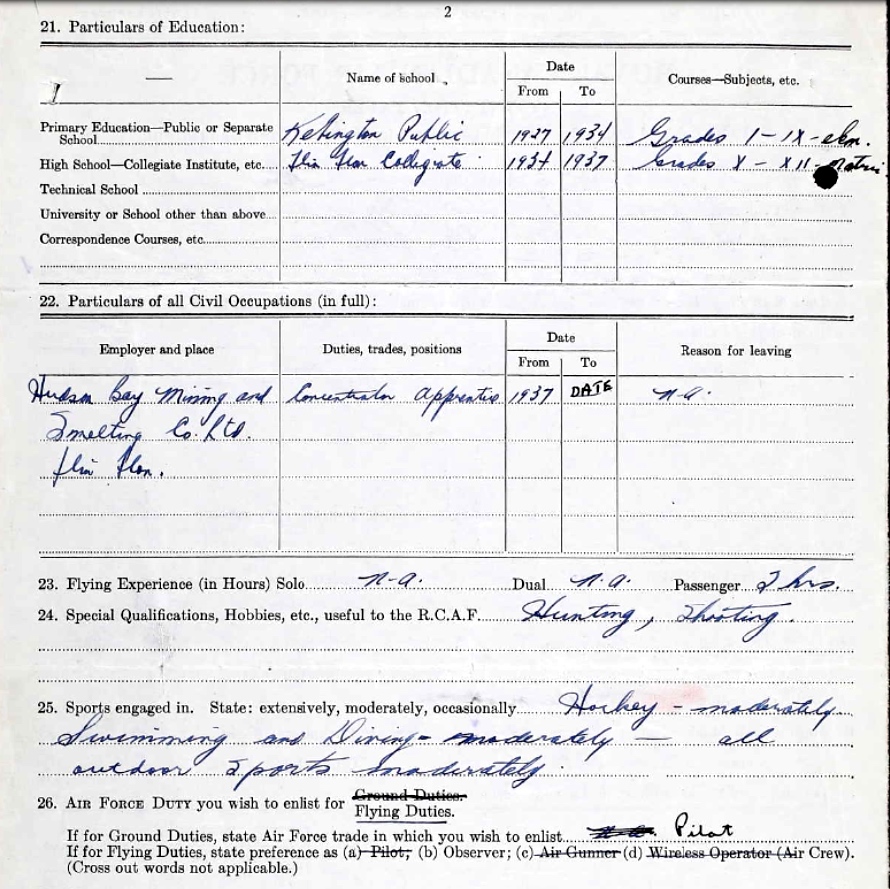 2
21. Particulars of Education:
Name of school
Date
From To
Courses—Subjects, etc.
Primary Education—Public or Separate
School Public 1927 1934 Grades I - IX - elem.
High School—Collegiate Institute, etc. Flin Flon Collegiate 1934 1937 Grades X - XII - matric
Technical School
University or School other than above
Correspondence Courses, etc.
22. Particulars of all Civil Occupations (in full):
Employer and place Duties, trades, positions
Date
From To
Reason for leaving
Hudson Bay Mining and Concentrator Apprentice 1937 DATE N.A.
Smelting Co. Ltd.
Flin Flon.
23. Flying Experience (in Hours) Solo N.A. Dual N.A. Passenger 2 hrs.
24. Special Qualifications, Hobbies, etc., useful to the R.C.A.F. Hunting, Shooting.
25. Sports engaged in. State: extensively, moderately, occasionally Hockey - moderately
Swimming and Diving - moderately — all
outdoor sports moderately.
26. AIR FORCE DUTY you wish to enlist for Ground Duties.
Flying Duties.
If for Ground Duties, state Air Force trade in which you wish to enlist Pilot
If for Flying Duties, state preference as (a) Pilot; (b) Observer; (c) Air Gunner (d) Wireless Operator (Air Crew).
(Cross out words not applicable.)